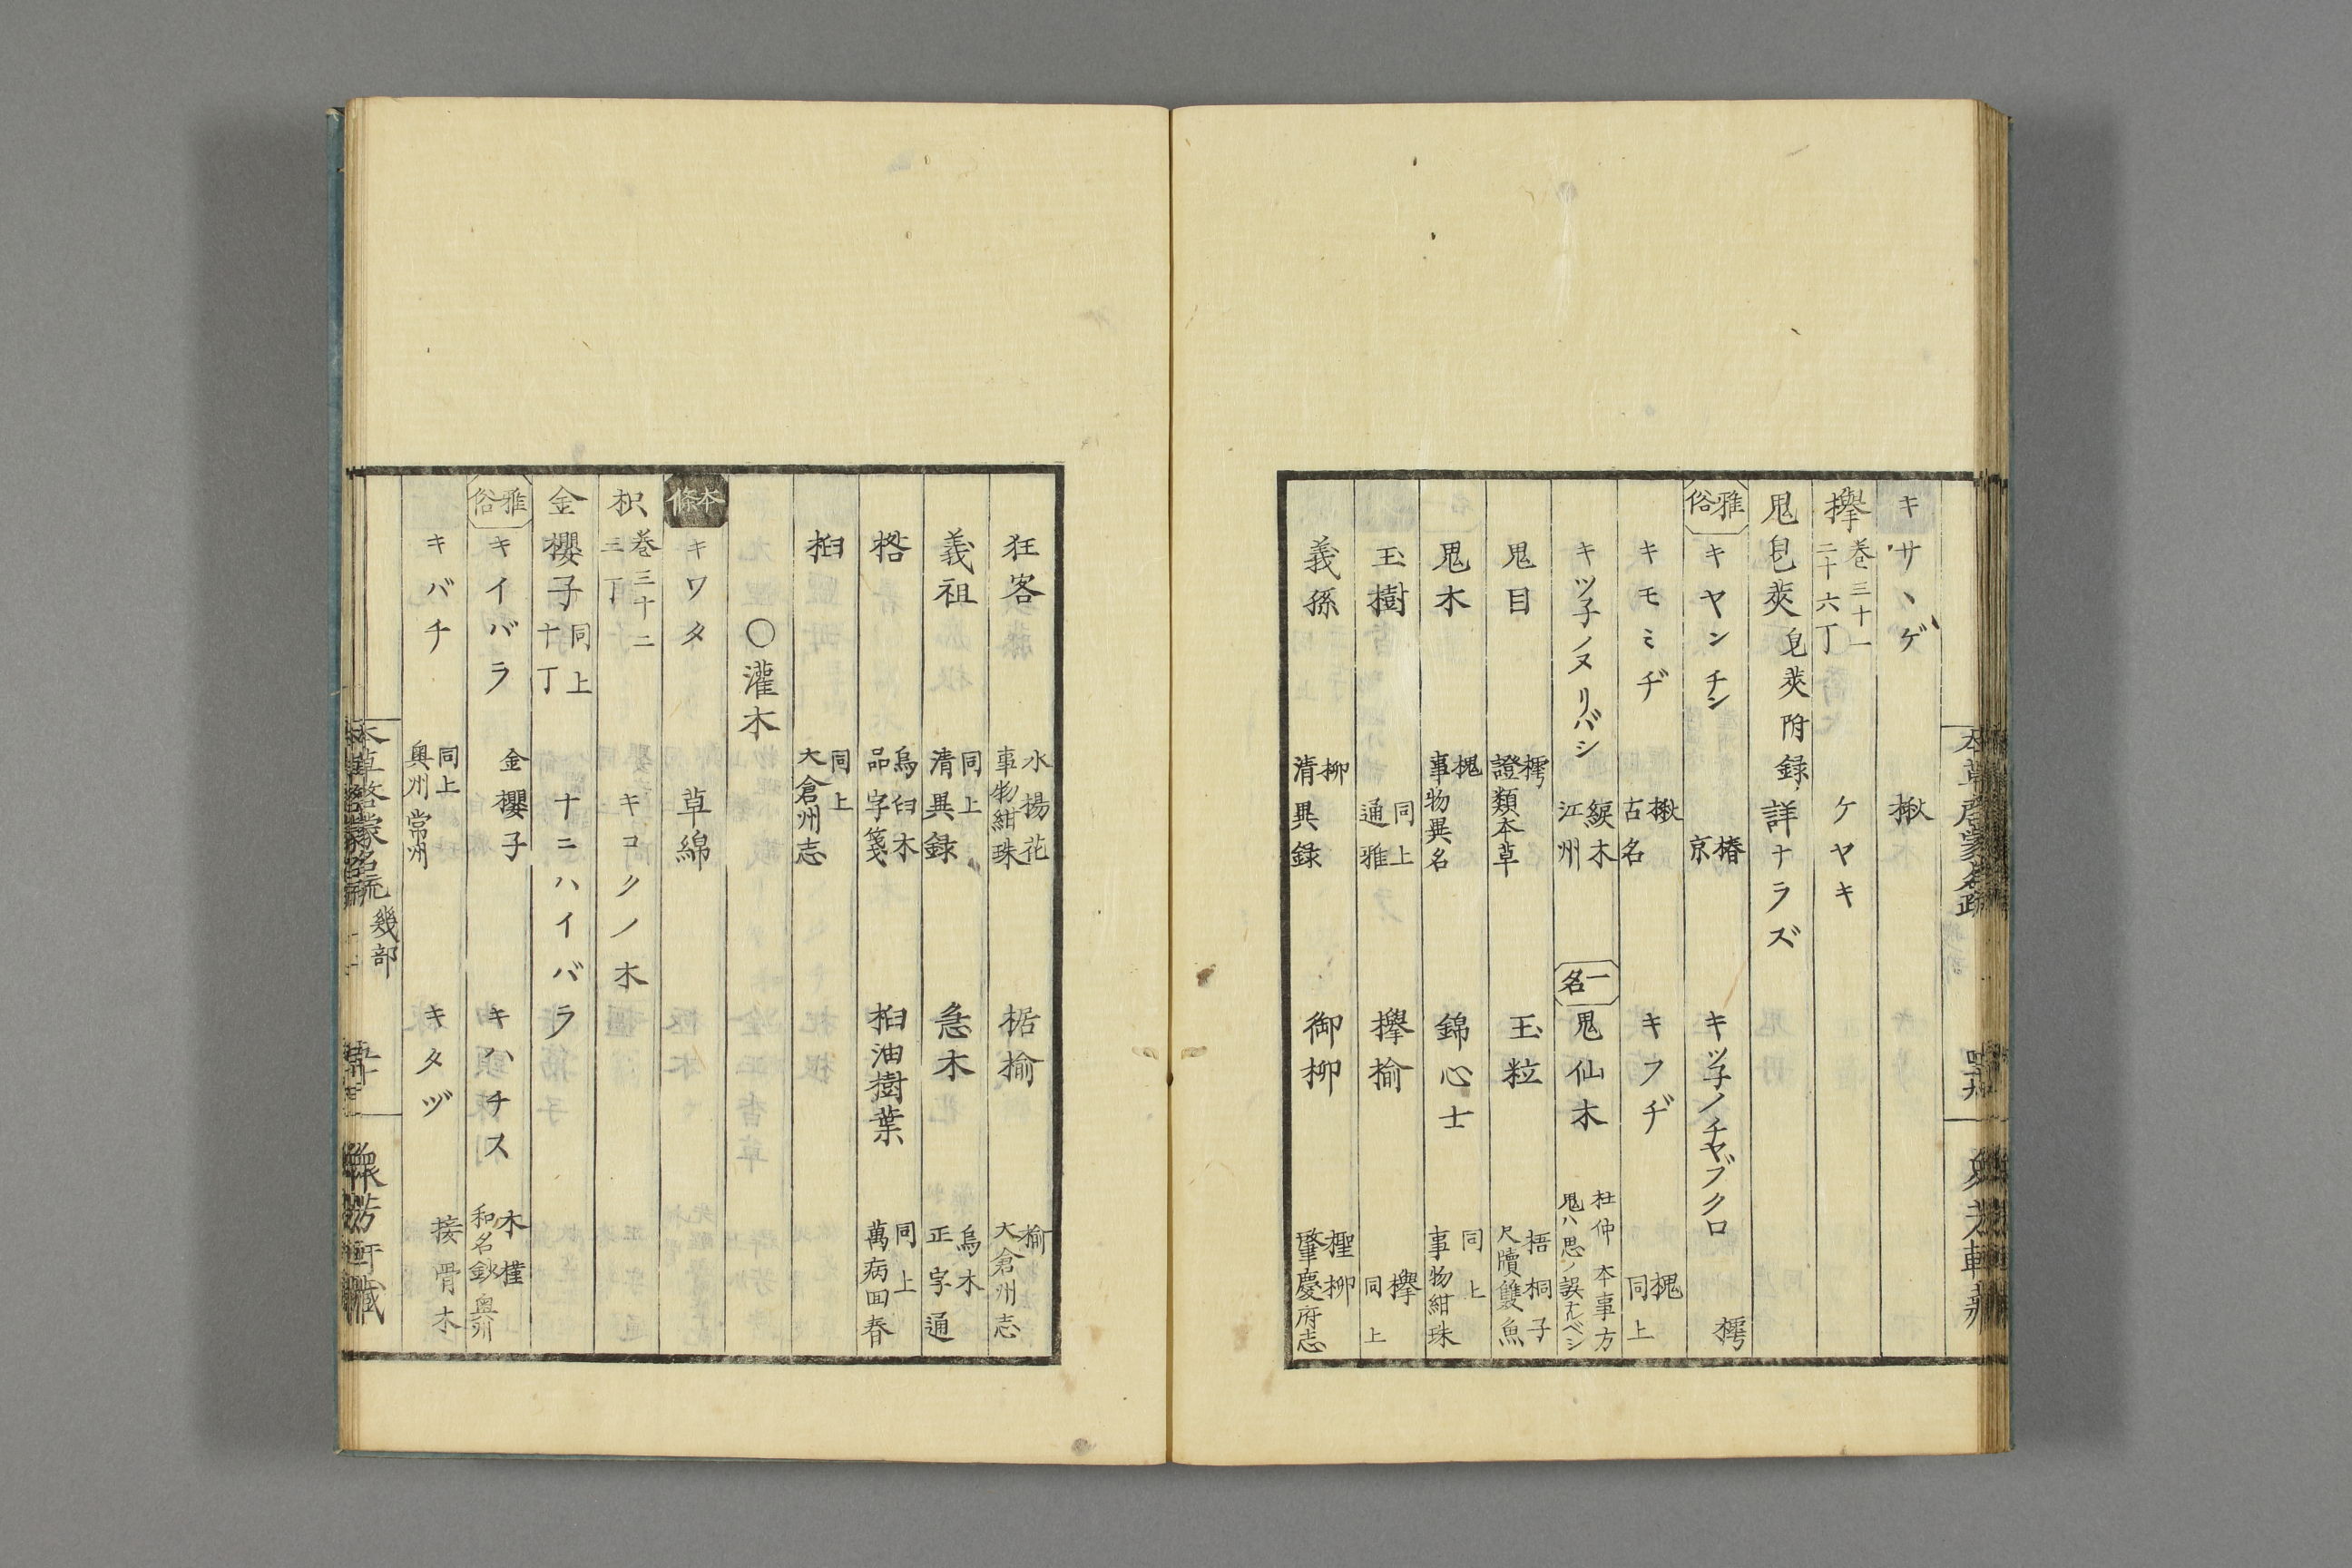 キサヽゲ 楸
欅 巻三十一 二十六丁 ケヤキ
鬼皂莢 皂莢附録 詳ナラズ
雅俗 キヤンチン 椿 京 キツ子ノチヤブクロ 樗
キモミヂ 楸 古名 キフヂ 槐 同上
キツ子ノヌリバシ 綟木 江州 一名 鬼仙木 杜仲 本事方 鬼ハ思ノ誤ナルベシ
鬼目 樗 證類本草 玉粒 梧桐子 尺牘雙魚
鬼木 槐 事物異名 錦心士 同上 事物紺珠
玉樹 同上 通雅 欅楡 欅 同上
義孫 柳 清異録 御柳 檉柳 肇慶府志
狂客 水楊花 事物紺珠 椐楡 楡 大倉州志
義祖 同上 清異録 急木 烏木 正字通
桰 烏臼木 品字箋 桕油樹葉 同上 萬病回春
桕 同上 大倉州志
○灌木
本條 キワタ 草綿
枳 巻三十二 三丁 キコクノ木
金櫻子 同上 十丁 ナニハイバラ
雅俗 キイバラ 金櫻子 キハチス 木槿 和名鈔 奥州
キバチ 同上 奥州 常州 キタヅ 接骨木
幾部